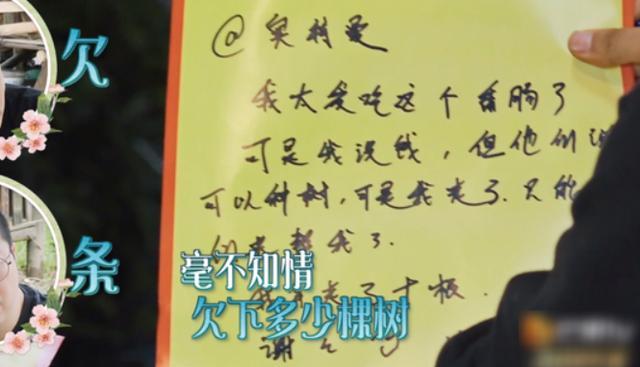 欠
条
@奥特曼
我太爱吃这个香肠了
可是我没钱,但他们说
可以种树,可是我累了.只能
们来帮我了.
了十根.
谢
毫不知情
欠下多少棵树